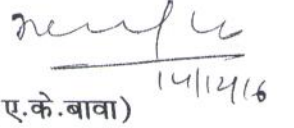 14/12/16
ए.के.बावा)